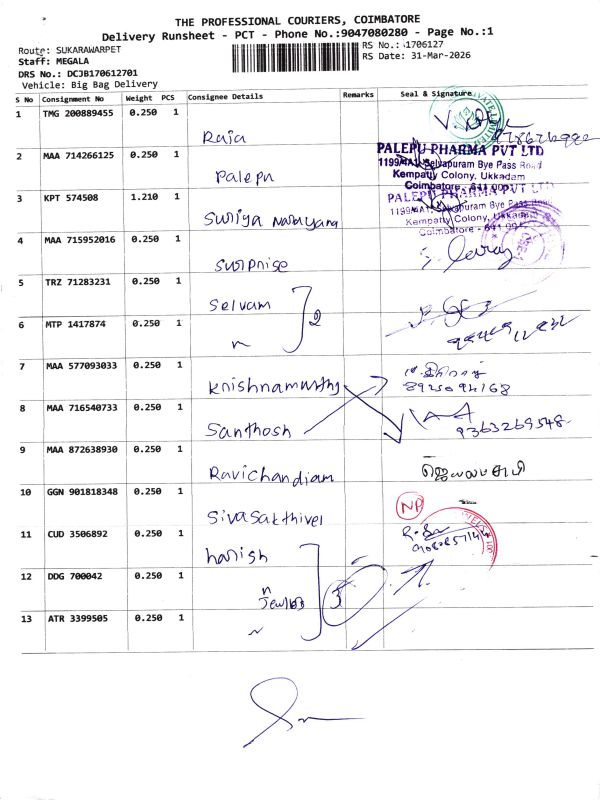 THE PROFESSIONAL COURIERS, COIMBATORE
Delivery Runsheet - PCT - Phone No.:9047080280 - Page No.:1
Route: SUKARAWARPET
RS No.: 1706127
Staff: MEGALA
RS Date: 31-Mar-2026
DRS No.: DCJB170612701
Vehicle: Big Bag Delivery
S No Consignment No Weight PCS Consignee Details Remarks Seal & Signature
1 TMG 200889455 0.250 1 Raja
2 MAA 714266125 0.250 1 Palepu
PALEPU PHARMA PVT LTD
1199/4A1, Selvapuram Bye Pass Road
Kempatty Colony, Ukkadam
Coimbatore - 641 001
3 KPT 574508 1.210 1 Suriya Narayana
PALEPU PHARMA PVT LTD
1199/4A1, Selvapuram Bye Pass Road
Kempatty Colony, Ukkadam
Coimbatore - 641 001
4 MAA 715952016 0.250 1 Surprise
5 TRZ 71283231 0.250 1 Selvam
2
6 MTP 1417874 0.250 1 "
7 MAA 577093033 0.250 1 Krishnamurthy
8925094168
8 MAA 716540733 0.250 1 Santhosh
9363269548
9 MAA 872638930 0.250 1 Ravichandiam
10 GGN 901818348 0.250 1 Sivasakthivel
NP
11 CUD 3506892 0.250 1 harish
12 DDG 700042 0.250 1 "
3
13 ATR 3399505 0.250 1 "